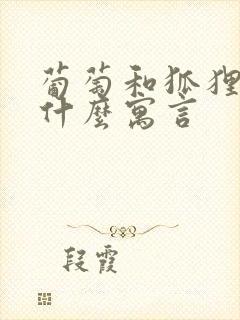 葡萄和狐狸
什麼寓言
段霞